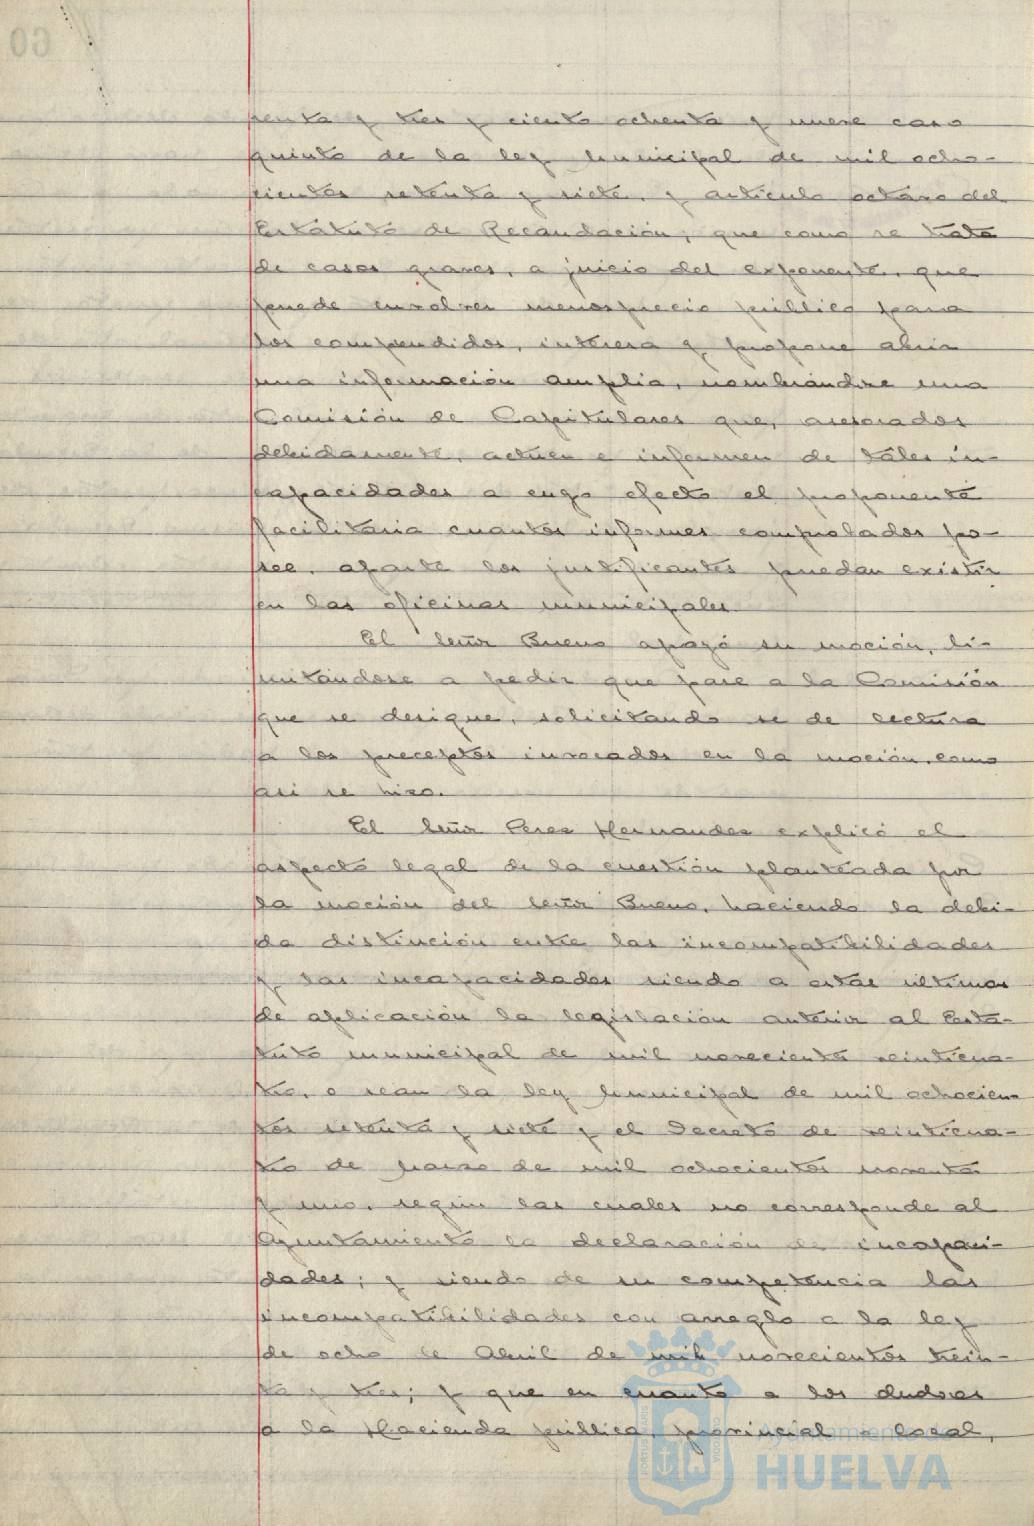 renta y tres y ciento ochenta y nueve caso
quinto de la ley Municipal de mil ocho-
cientos setenta y siete, y artículo octavo del
Estatuto de Recaudación; que como se trata
de casos graves, a juicio del exponente, que
puede envolver menosprecio público para
los comprendidos, interesa y propone abrir
una información amplia, nombrándose una
Comisión de Capitulares que, asesorados
debidamente, actúen e informen de tales in-
capacidades a cuyo efecto el proponente
facilitaria cuantos informes comprobados po-
see, aparte los justificantes puedan existir
en las oficinas municipales
El Señor Bueno apoyó su moción, li-
mitándose a pedir que pase a la Comisión
que se designe, solicitando se de lectura
a los preceptos invocados en la moción, como
asi se hizo.
El Señor Perez Hernandez explicó el
aspecto legal de la cuestión planteada por
la moción del Señor Bueno, haciendo la debi-
da distinción entre las incompatibilidades
y las incapacidades siendo a estas ultimas
de aplicación la legislación anterior al Esta-
tuto municipal de mil novecientos veinticua-
tro, o sean la ley Municipal de mil ochocien-
tos setenta y siete y el Decreto de veinticua-
tro de Marzo de mil ochocientos noventa
y uno, según las cuales no corresponde al
Ayuntamiento la declaración de incapaci-
dades; y siendo de su competencia las
incompatibilidades con arreglo a la ley
de ocho de Abril de mil novecientos trein-
ta y tres; y que en cuanto a los deudores
a la Hacienda pública, provincial o local,
Ayuntamiento de
HUELVA
60